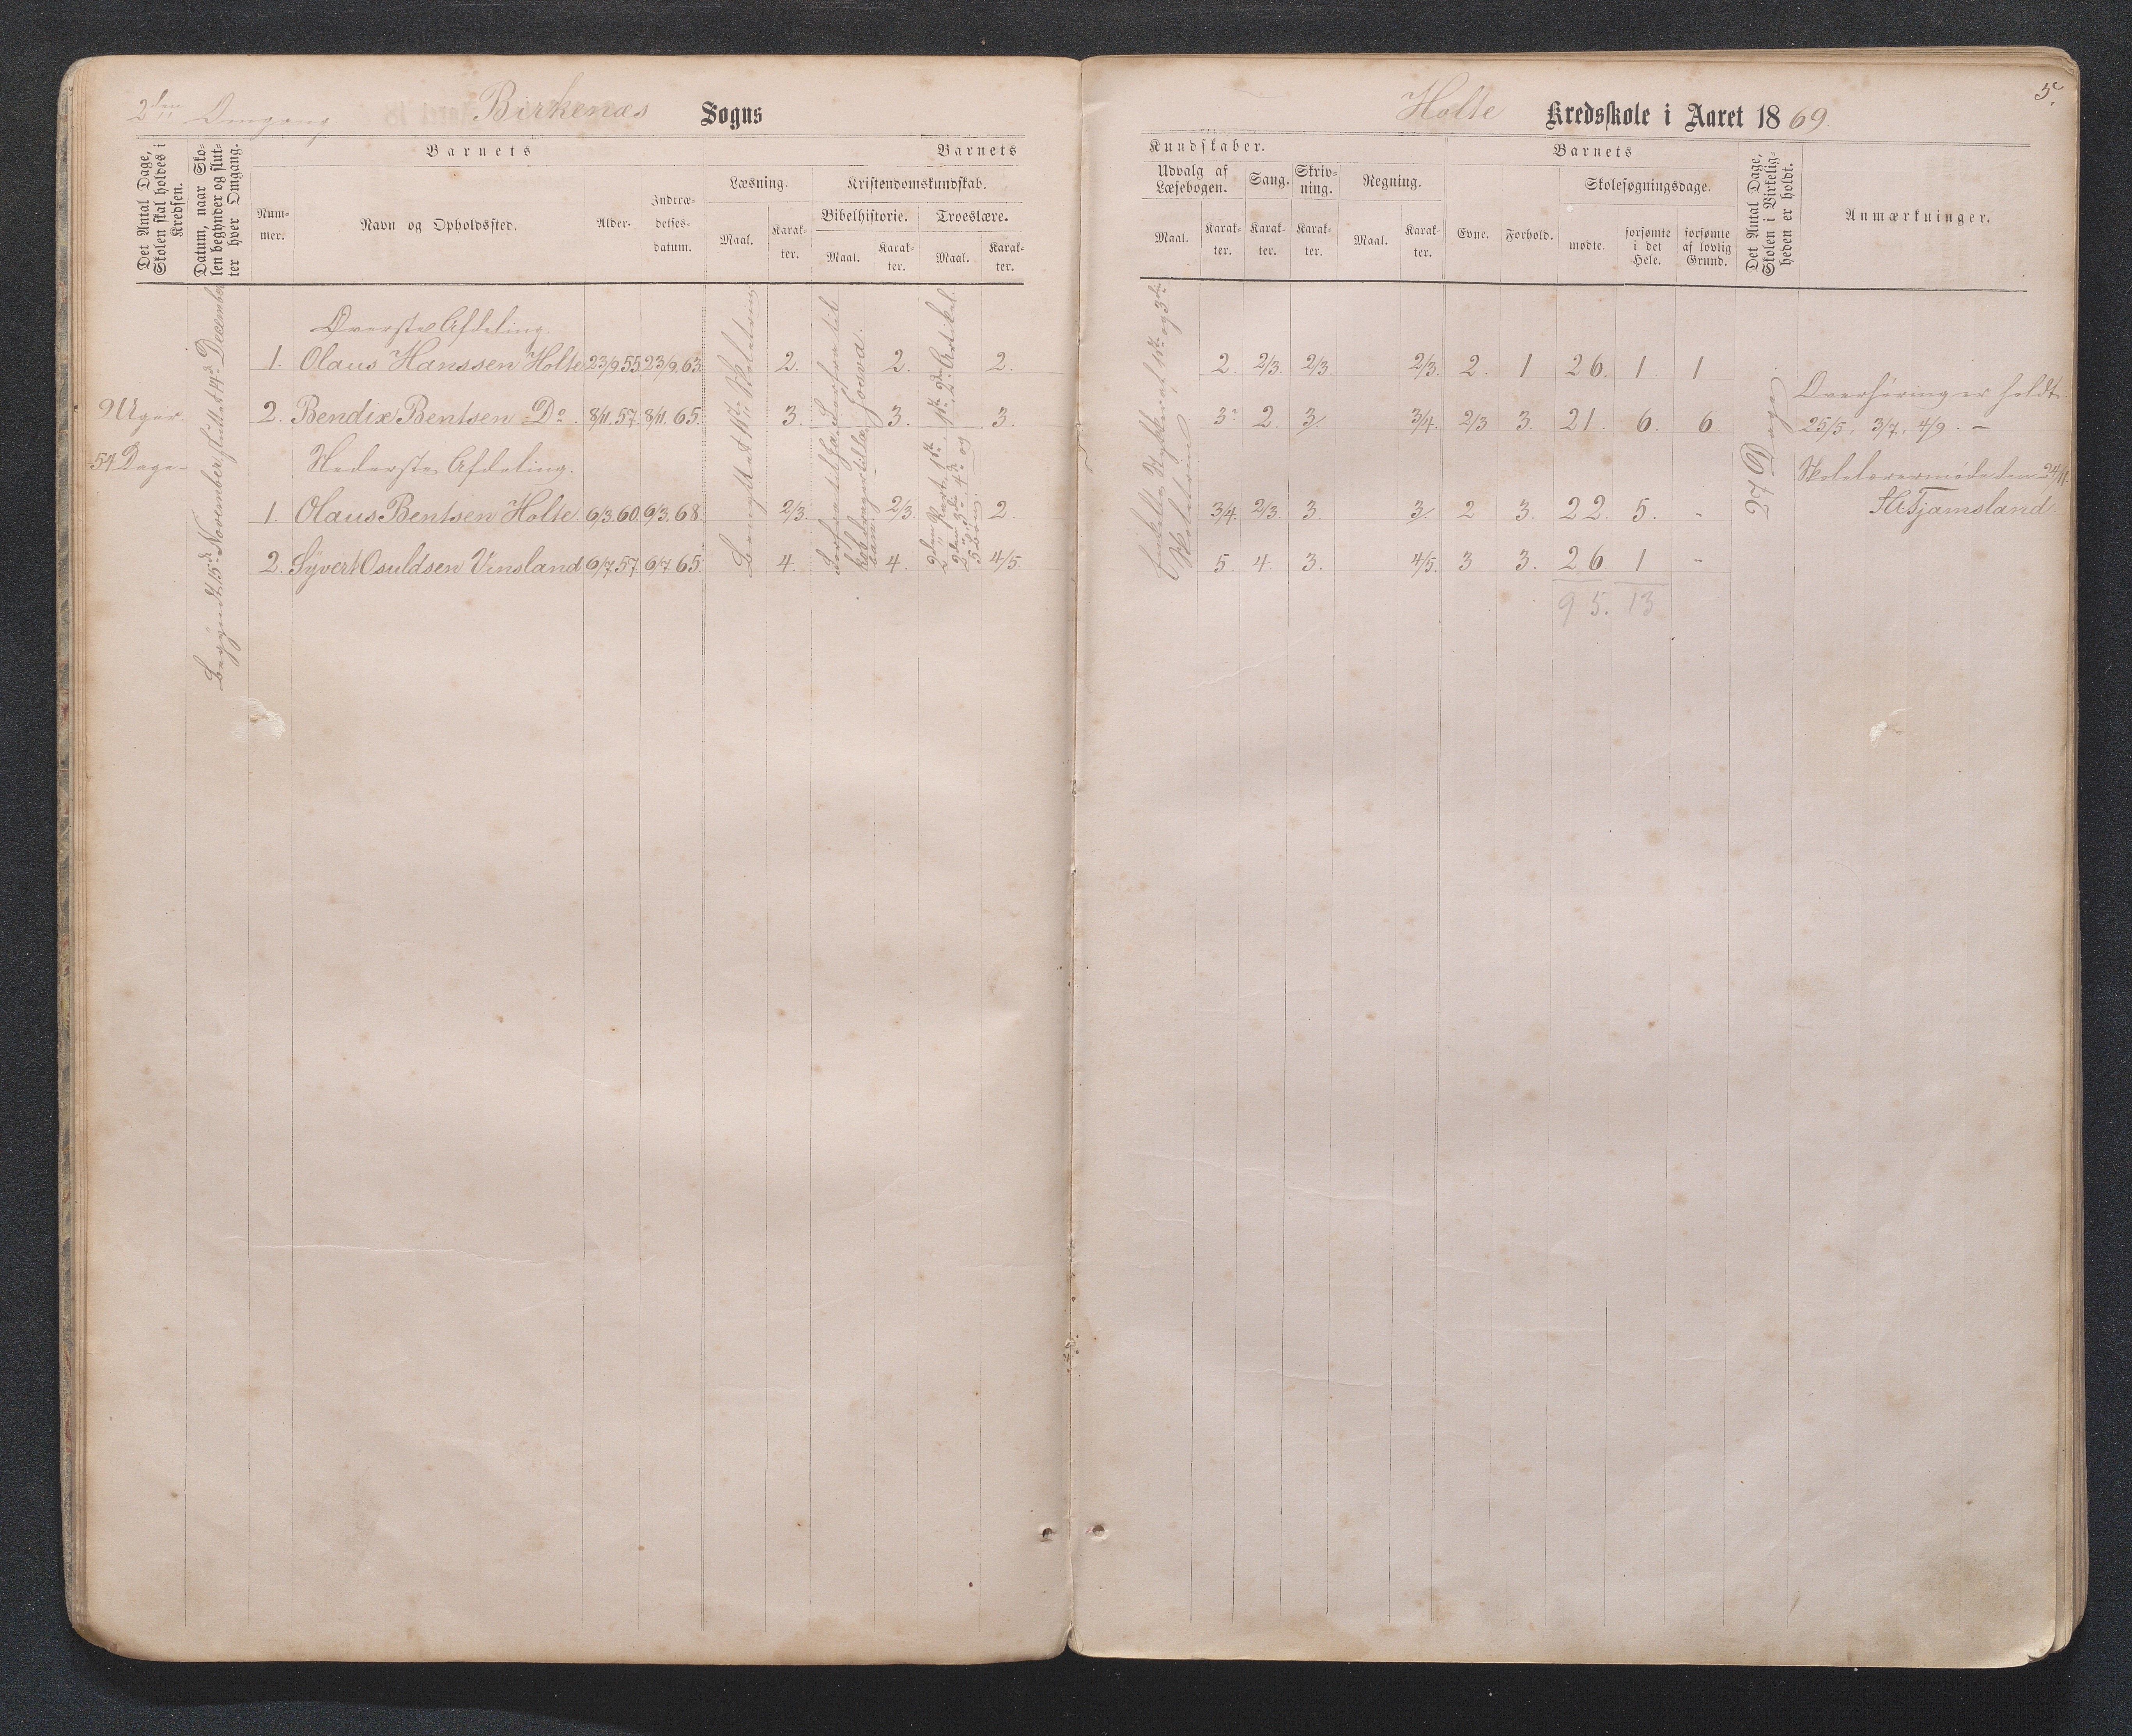 2den Omgang Birkenæs Sogns
Holte Kredsskole i Aaret 1869.
5.
Det Antal Dage, Skolen skal holdes i Kredsen.
Datum, naar Skolen begynder og slutter hver Omgang.
Barnets
Barnets
Nummer.
Navn og Opholdssted.
Alder.
Indtrædelsesdatum.
Læsning.
Maal.
Karakter.
Kristendomskundskab.
Bibelhistorie.
Maal.
Karakter.
Troeslære.
Maal.
Karakter.
Kundskaber.
Udvalg af Læsebogen.
Maal.
Karakter.
Sang.
Karakter.
Skrivning.
Karakter.
Regning.
Maal.
Karakter.
Barnets
Evne.
Forhold.
Skolesøgningsdage.
mødte.
forsømte i det Hele.
forsømte af lovlig Grund.
Det Antal Dage, Skolen i Virkeligheden er holdt.
Anmærkninger.
9 Uger
54 Dage
Begyndt 15de November sluttet 14de December
Øverste Afdeling.
1. Olaus Hanssen Holte 23/9.55 23/9.63. 2. 2. 2. 2. 2/3. 2/3. 2/3. 2. 1 26. 1. 1
2. Bendix Bentsen Do. 8/11.57. 8/11.65. 3. 3. 3. 3 2. 3. 3/4. 2/3 3. 21. 6. 6
Nederste Afdeling.
1. Olaus Bentsen Holte 6/3.60. 6/3.68. 2/3. 2/3. 2. 3/4. 2/3. 3 3. 2 3. 22. 5. "
2. Syvert Osuldsen Vinsland 6/7.57 6/7 65. 4. 4. 4/5. 5. 4. 3. 4/5. 3 3. 26. 1 "
95. 13
Benyttet 1ste Skoletrin
Josva.
Enkelte Stykker af 1ste og 3die
Skoletrin
27 Dage
Overhøring er holdt
25/5. 3/7. 4/9. –
Skolelærermøde den 24/11.
Tjamsland